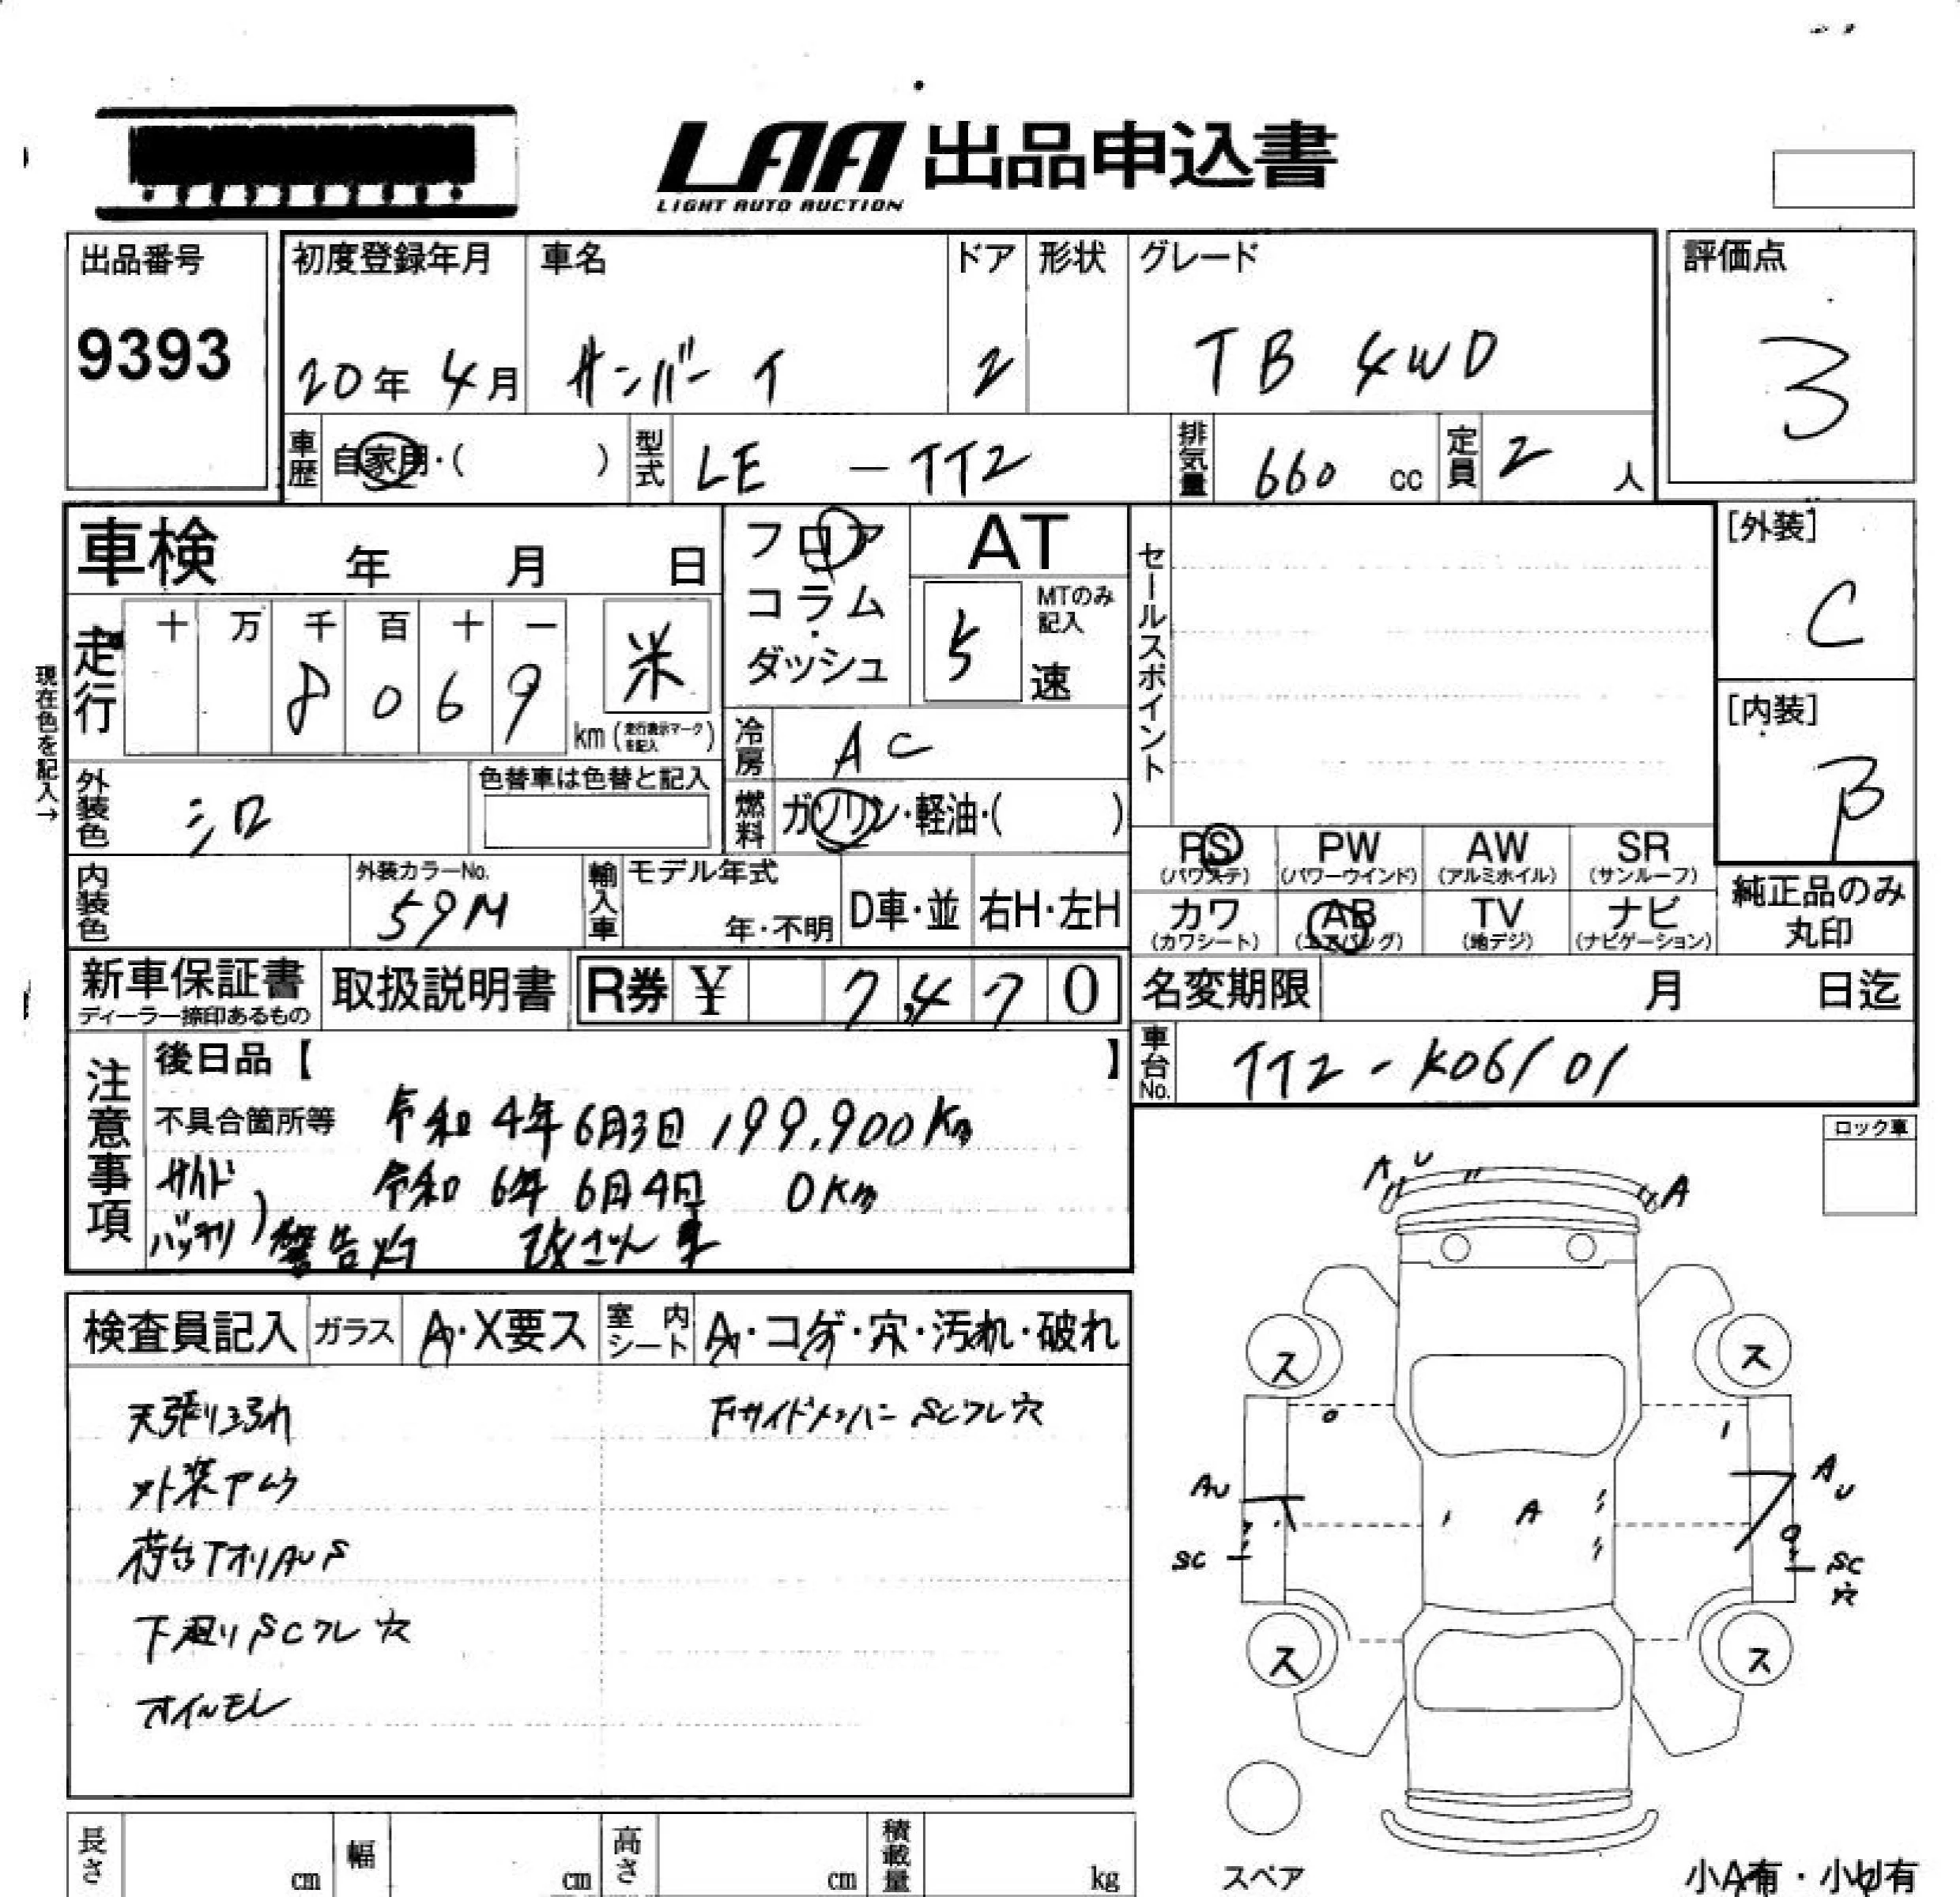 LAA 出品申込書
LIGHT AUTO AUCTION
出品番号
9393
初度登録年月
20年 4月
車名
サンバー T
ドア
2
形状
グレード
TB 4WD
評価点
3
車歴
自家用・( )
型式
LE - TT2
排気量
660 cc
定員
2 人
車検 年 月 日
フロア
コラム
・
ダッシュ
AT
5
MTのみ
記入
速
セールスポイント
[外装]
C
[内装]
B
現在色を記入→
走行
十 万 千 百 十 一
8 0 6 9
米
km (走行表示マークを記入)
冷房
AC
外装色
シロ
色替車は色替と記入
燃料
ガソリン・軽油・( )
PS
(パワステ)
PW
(パワーウインド)
AW
(アルミホイル)
SR
(サンルーフ)
カワ
(カワシート)
AB
(エアバッグ)
TV
(地デジ)
ナビ
(ナビゲーション)
純正品のみ
丸印
内装色
外装カラーNo.
59M
輸入車
モデル年式
年・不明
D車・並
右H・左H
新車保証書
ディーラー捺印あるもの
取扱説明書
R券 ¥ 7,470
名変期限 月 日迄
車台No.
TT2-K06101
注意事項
後日品【 】
不具合箇所等
令和4年6月3日 199,900Km
サイド
令和6年6月4日 0Km
バッテリ
警告灯 改ざん車
検査員記入
ガラス
A・X要ス
室内シート
A・コゲ・穴・汚れ・破れ
天張り汚れ
下サイドメンバー SCフレ穴
外装アムラ
荷台アオリAUS
下廻りSCフレ 穴
オイルモレ
ロック車
A U
A
ス
ス
AU
A
A U
SC
SC
穴
ス
ス
スペア
小A有・小U有
長さ cm
幅 cm
高さ cm
積載量 kg